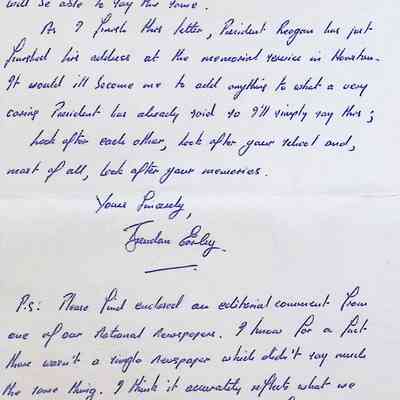 will be able to say the same.
As I finish this letter, President Reagan has just
finished his address at the memorial service in Houston.
It would ill become me to add anything to what a very
caring President has already said so I'll simply say this;
look after each other, look after your school and,
most of all, look after your memories.
Yours Sincerely,
Brendan
P.S: Please find enclosed an editorial comment from
one of our National Newspapers. I know for a fact
there wasn't a single newspaper which didn't say much
the same thing. I think it accurately reflects what we